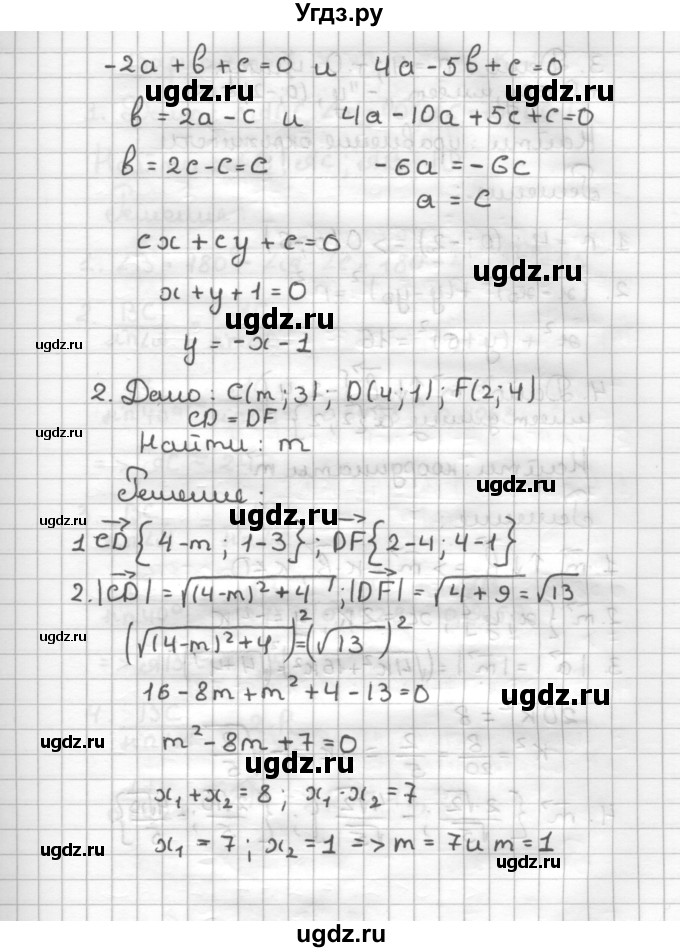 Угдз.ру
-2a + b + c = 0 и 4a - 5b + c = 0
ugdz.ru ugdz.ru
b = 2a - c и 4a - 10a + 5c + c = 0
b = 2c - c = c -6a = -6c
a = c
cx + cy + c = 0
ugdz.ru
x + y + 1 = 0
ugdz.ru
ugdz.ru y = -x - 1
2. Дано: C(m; 3); D(4; 1); F(2; 4)
CD = DF
ugdz.ru
Найти: m
Решение:
ugdz.ru
ugdz.ru ugdz.ru
1 CD{4-m; 1-3}; DF{2-4; 4-1}
2. |CD| = √((4-m)² + 4); |DF| = √(4 + 9) = √13
ugdz.ru
(√((4-m)² + 4))² = (√13)²
16 - 8m + m² + 4 - 13 = 0
ugdz.ru
ugdz.ru m² - 8m + 7 = 0
ugdz.ru
x₁ + x₂ = 8; x₁ · x₂ = 7
ugdz.ru
x₁ = 7; x₂ = 1 => m = 7 и m = 1
ugdz.ru ugdz.ru
ugdz.ru